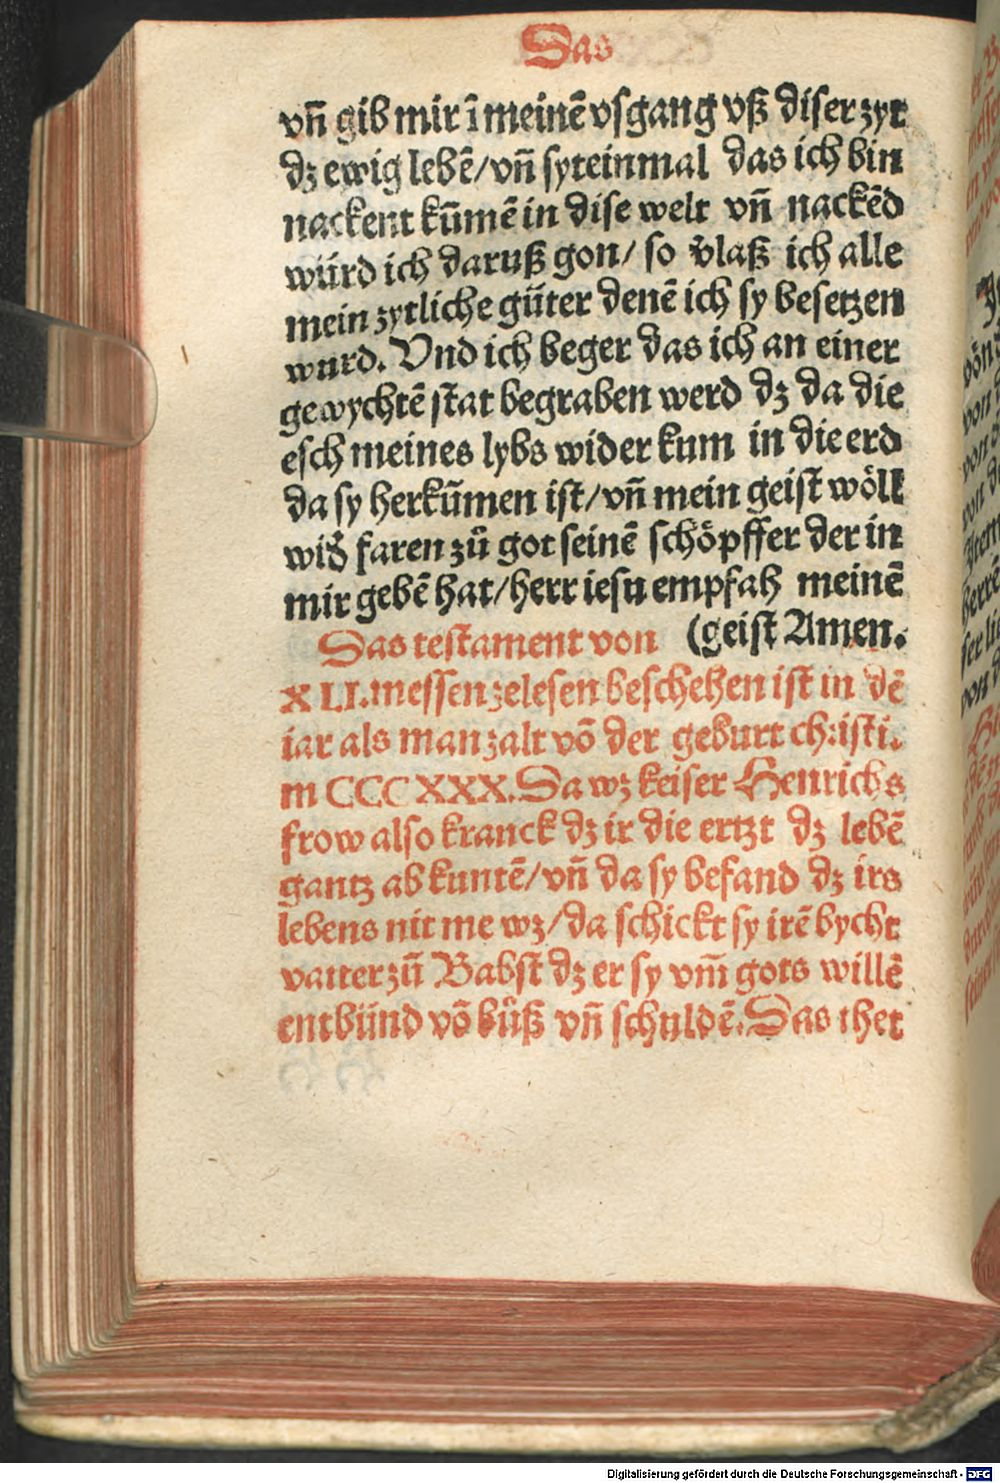 Das
vn̄ gib mir ī meinē vsgang vß diser zyt
dz ewig lebē/vn̄ syteinmal das ich bin
nackent kūmē in dise welt vn̄ nackēd
würd ich daruß gon/ so v̄laß ich alle
mein zytliche gůter denē ich sy besetzen
wurd. Vnd ich beger das ich an einer
gewychtē stat begraben werd dz da die
esch meines lybs wider kum in die erd
da sy herkūmen ist/vn̄ mein geist wöll
wid̄ faren zů got seinē schöpffer der in
mir gebē hat/herr iesu empfah meinē
(geist Amen.
Das testament von
XLI.messen zelesen beschehen ist in dē
iar als man zalt vō der geburt christi.
m CCC XXX. Da wz keiser Henrichs
frow also kranck dz ir die ertzt dz lebē
gantz ab kuntē/vn̄ da sy befand dz irs
lebens nit me wz/da schickt sy irē bycht
vatter zů Babst dz er sy vm̄ gots willē
entbünd vō bůß vn̄ schuldē. Das thet
Digitalisierung gefördert durch die Deutsche Forschungsgemeinschaft - DFG